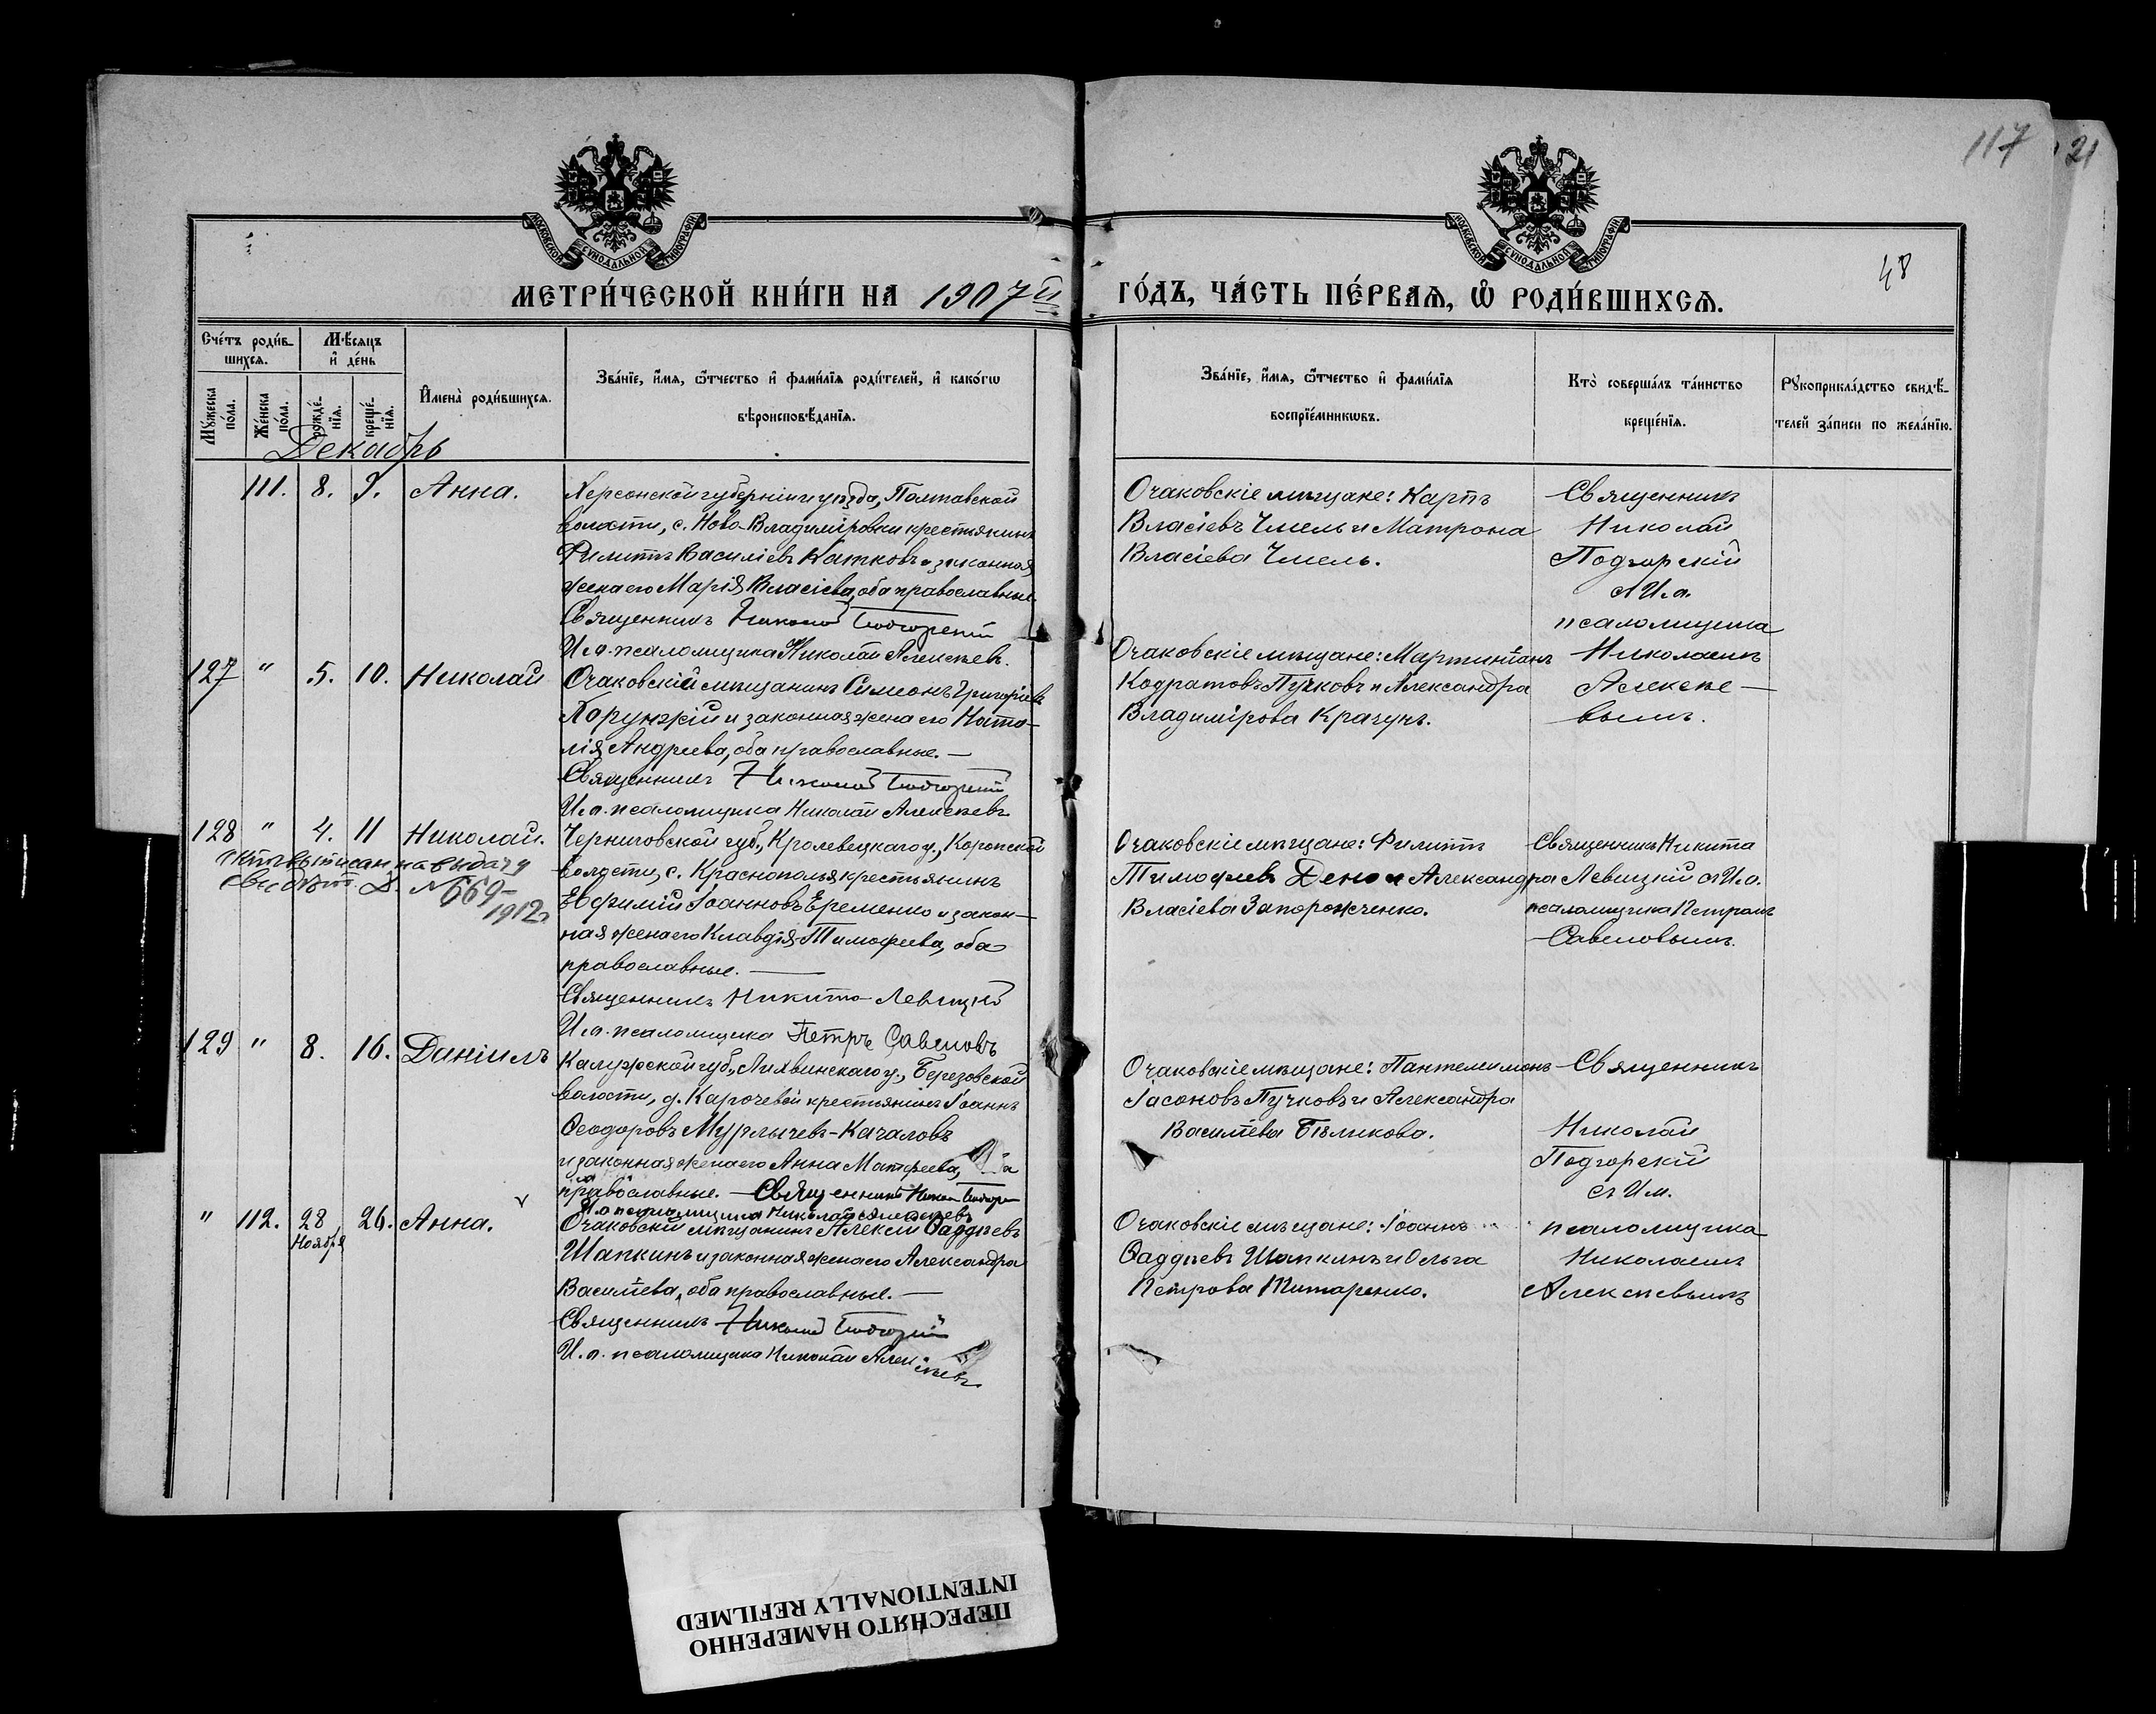 117
21
48
МОСКОВСКОЙ СѴНОДАЛЬНОЙ ТИПОГРАФІИ
МОСКОВСКОЙ СѴНОДАЛЬНОЙ ТИПОГРАФІИ
МЕТРИ́ЧЕСКОЙ КНИ́ГИ НА 1907й ГО́ДЪ, ЧА́СТЬ ПЕ́РВАѦ, Ѡ҆ РОДИ́ВШИХСѦ.
Сче́тъ роди́в-
шихсѧ.
Мѣ́сѧцъ
и҆ де́нь
Мꙋ́жеска
по́ла.
Же́нска
по́ла.
рожде́-
нїѧ.
креще́-
нїѧ.
И҆мена̀ роди́вшихсѧ.
Зва́нїе, и҆́мѧ, ѻ҆́тчество и҆ фами́лїѧ роди́телей, и҆ како́гѡ
вѣроисповѣ́данїѧ.
Зва́нїе, и҆́мѧ, ѻ҆́тчество и҆ фами́лїѧ
воспрїе́мниковъ.
Кто̀ соверша́лъ та́инство
креще́нїѧ.
Рꙋкоприкла́дство свидѣ́-
телей за́писи по жела́нїю.
Декабрь
111. 8. 9. Анна.
Херсонской губерніи и уѣзда, Полтавской
волости, с. Ново-Владиміровки крестьянинъ
Филиппъ Василіевъ Катковъ и законная
жена его Марія Власіева, оба православные.
Священникъ Николай Подгорскій
И. о. псаломщика Николай Алексѣевъ.
Очаковскіе мѣщане: Карпъ
Власіевъ Чмель и Матрона
Власіева Чмель.
Священникъ
Николай
Подгорскій
с И. о.
псаломщика
Николаемъ
Алексѣе-
вымъ.
127 " 5. 10. Николай
Очаковскій мѣщанинъ Симеонъ Григоріевъ
Хорунжій и законная жена его Ната-
лія Андреева, оба православные. —
Священникъ Николай Подгорскій
И. о. псаломщика Николай Алексѣевъ
Очаковскіе мѣщане: Мартиніанъ
Кодратовъ Пучковъ и Александра
Владимірова Крачунъ.
128 " 4. 11 Николай.
выписан на выдачу
свидѣт. № 669-
1912 г.
Черниговской губ., Кролевецкаго у., Коропской
волости, с. Краснополья крестьянинъ
Евфимій Іоанновъ Еременко и закон-
ная жена его Клавдія Тимофеева, оба
православные. —
Священникъ Никита Левицкій
И. о. псаломщика Петръ Савеловъ
Очаковскіе мѣщане: Филиппъ
Тимофеевъ Дено и Александра
Власіева Запорожченко.
Священникъ Никита
Левицкій съ И. о.
псаломщика Петромъ
Савеловымъ.
129 " 8. 16. Даніилъ
Калужской губ., Лихвинскаго у., Березовской
волости, д. Карочевой крестьянинъ Іоаннъ
Ѳеодоровъ Мурлычевъ-Качаловъ
и законная жена его Анна Матфеева, оба
православные. — Священникъ Никол Подгорс
И о псаломщика Николай Алексѣевъ
Очаковскіе мѣщане: Пантелеимонъ
Іасоновъ Пучковъ и Александра
Василіева Бѣликова.
Священникъ
Николай
Подгорскій
съ И. о.
псаломщика
Николаемъ
Алексѣевымъ
" 112. 28 Ноября 26. Анна.
Очаковскій мѣщанинъ Алексій Ѳаддѣевъ
Шапкинъ и законная жена его Александра
Василіева, оба православные. —
Священникъ Николай Подгорскій
И. о. псаломщика Николай Алексѣевъ
Очаковскіе мѣщане: Іоаннъ
Ѳаддѣевъ Шапкинъ и Ольга
Петрова Титаренко.
ПЕРЕСНЯТО НАМЕРЕННО
INTENTIONALLY REFILMED